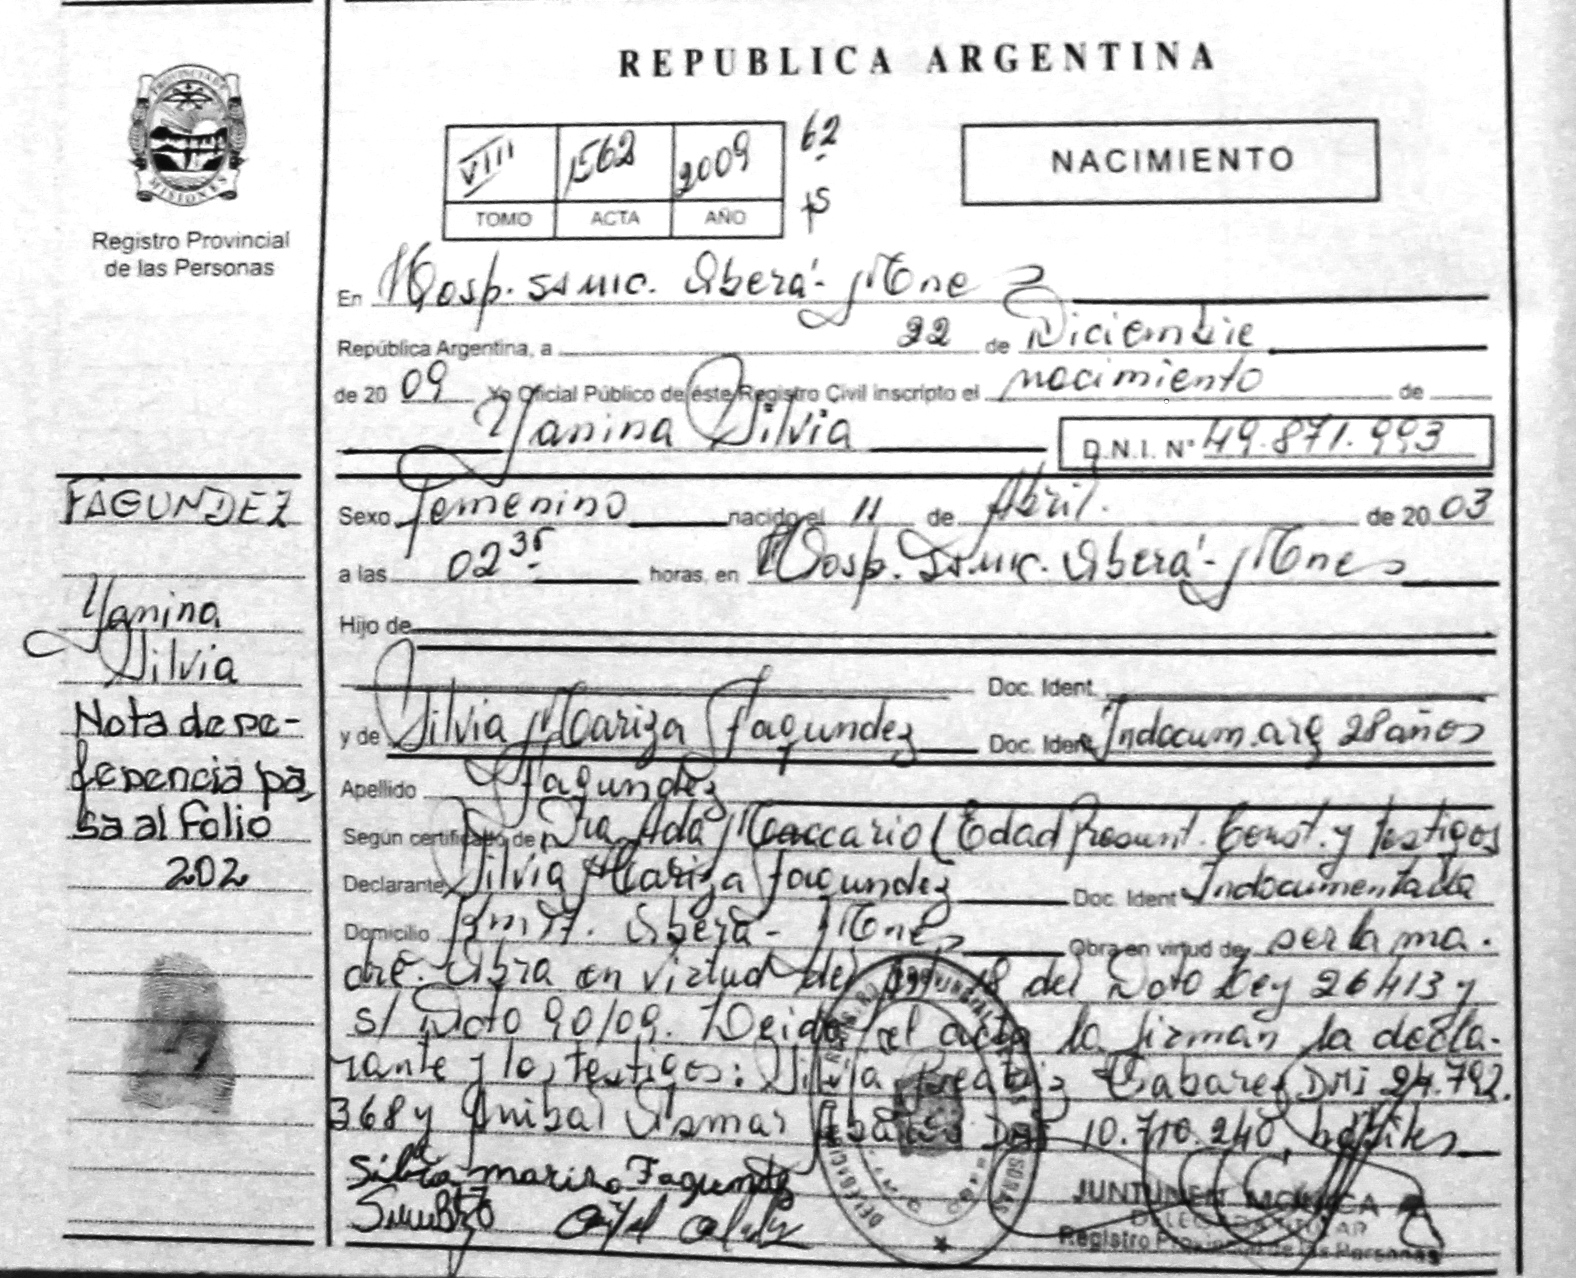 PROVINCIA DE
MISIONES
Registro Provincial
de las Personas
FAGUNDEZ
Yanina
Silvia
Nota de re-
ferencia pa
sa al folio
202
REPUBLICA ARGENTINA
VIII 1562 2009 62
TOMO ACTA AÑO
NACIMIENTO
En Hosp. SSMIC. Oberá- Mnes
República Argentina, a 22 de Diciembre
de 20 09 Yo Oficial Público de éste Registro Civil inscripto el nacimiento de
Yanina Silvia D.N.I. N° 49.871.993
Sexo femenino nacido el 11 de Abril. de 20 03
a las 02 35 horas, en Hosp. SSMIC. Oberá- Mnes
Hijo de
Doc. Ident.
y de Silvia Mariza Fagundez Doc. Ident. Indocum. arg 28 años
Apellido Fagundez
Según certificado de Dra Ada Maccario (Edad Presunt. Const. y testigos
Declarante Silvia Mariza Fagundez Doc. Ident Indocumentada
Domicilio Km 17. Oberá- Mnes Obra en virtud de ser la ma.
dre. Obra en virtud del 18 del Dcto Ley 26413 y
s/ Dcto 90/09. Leida el acta la firman la decla-
rante y los testigos: Silvia Beatriz Cabarez DNI 24.792.
368 y Anibal DNI 10.710.240, hábiles
Silvia mariza Fagundez
JUNTUNEN MONICA
DELEGADA TITULAR
Registro Provincial de las Personas